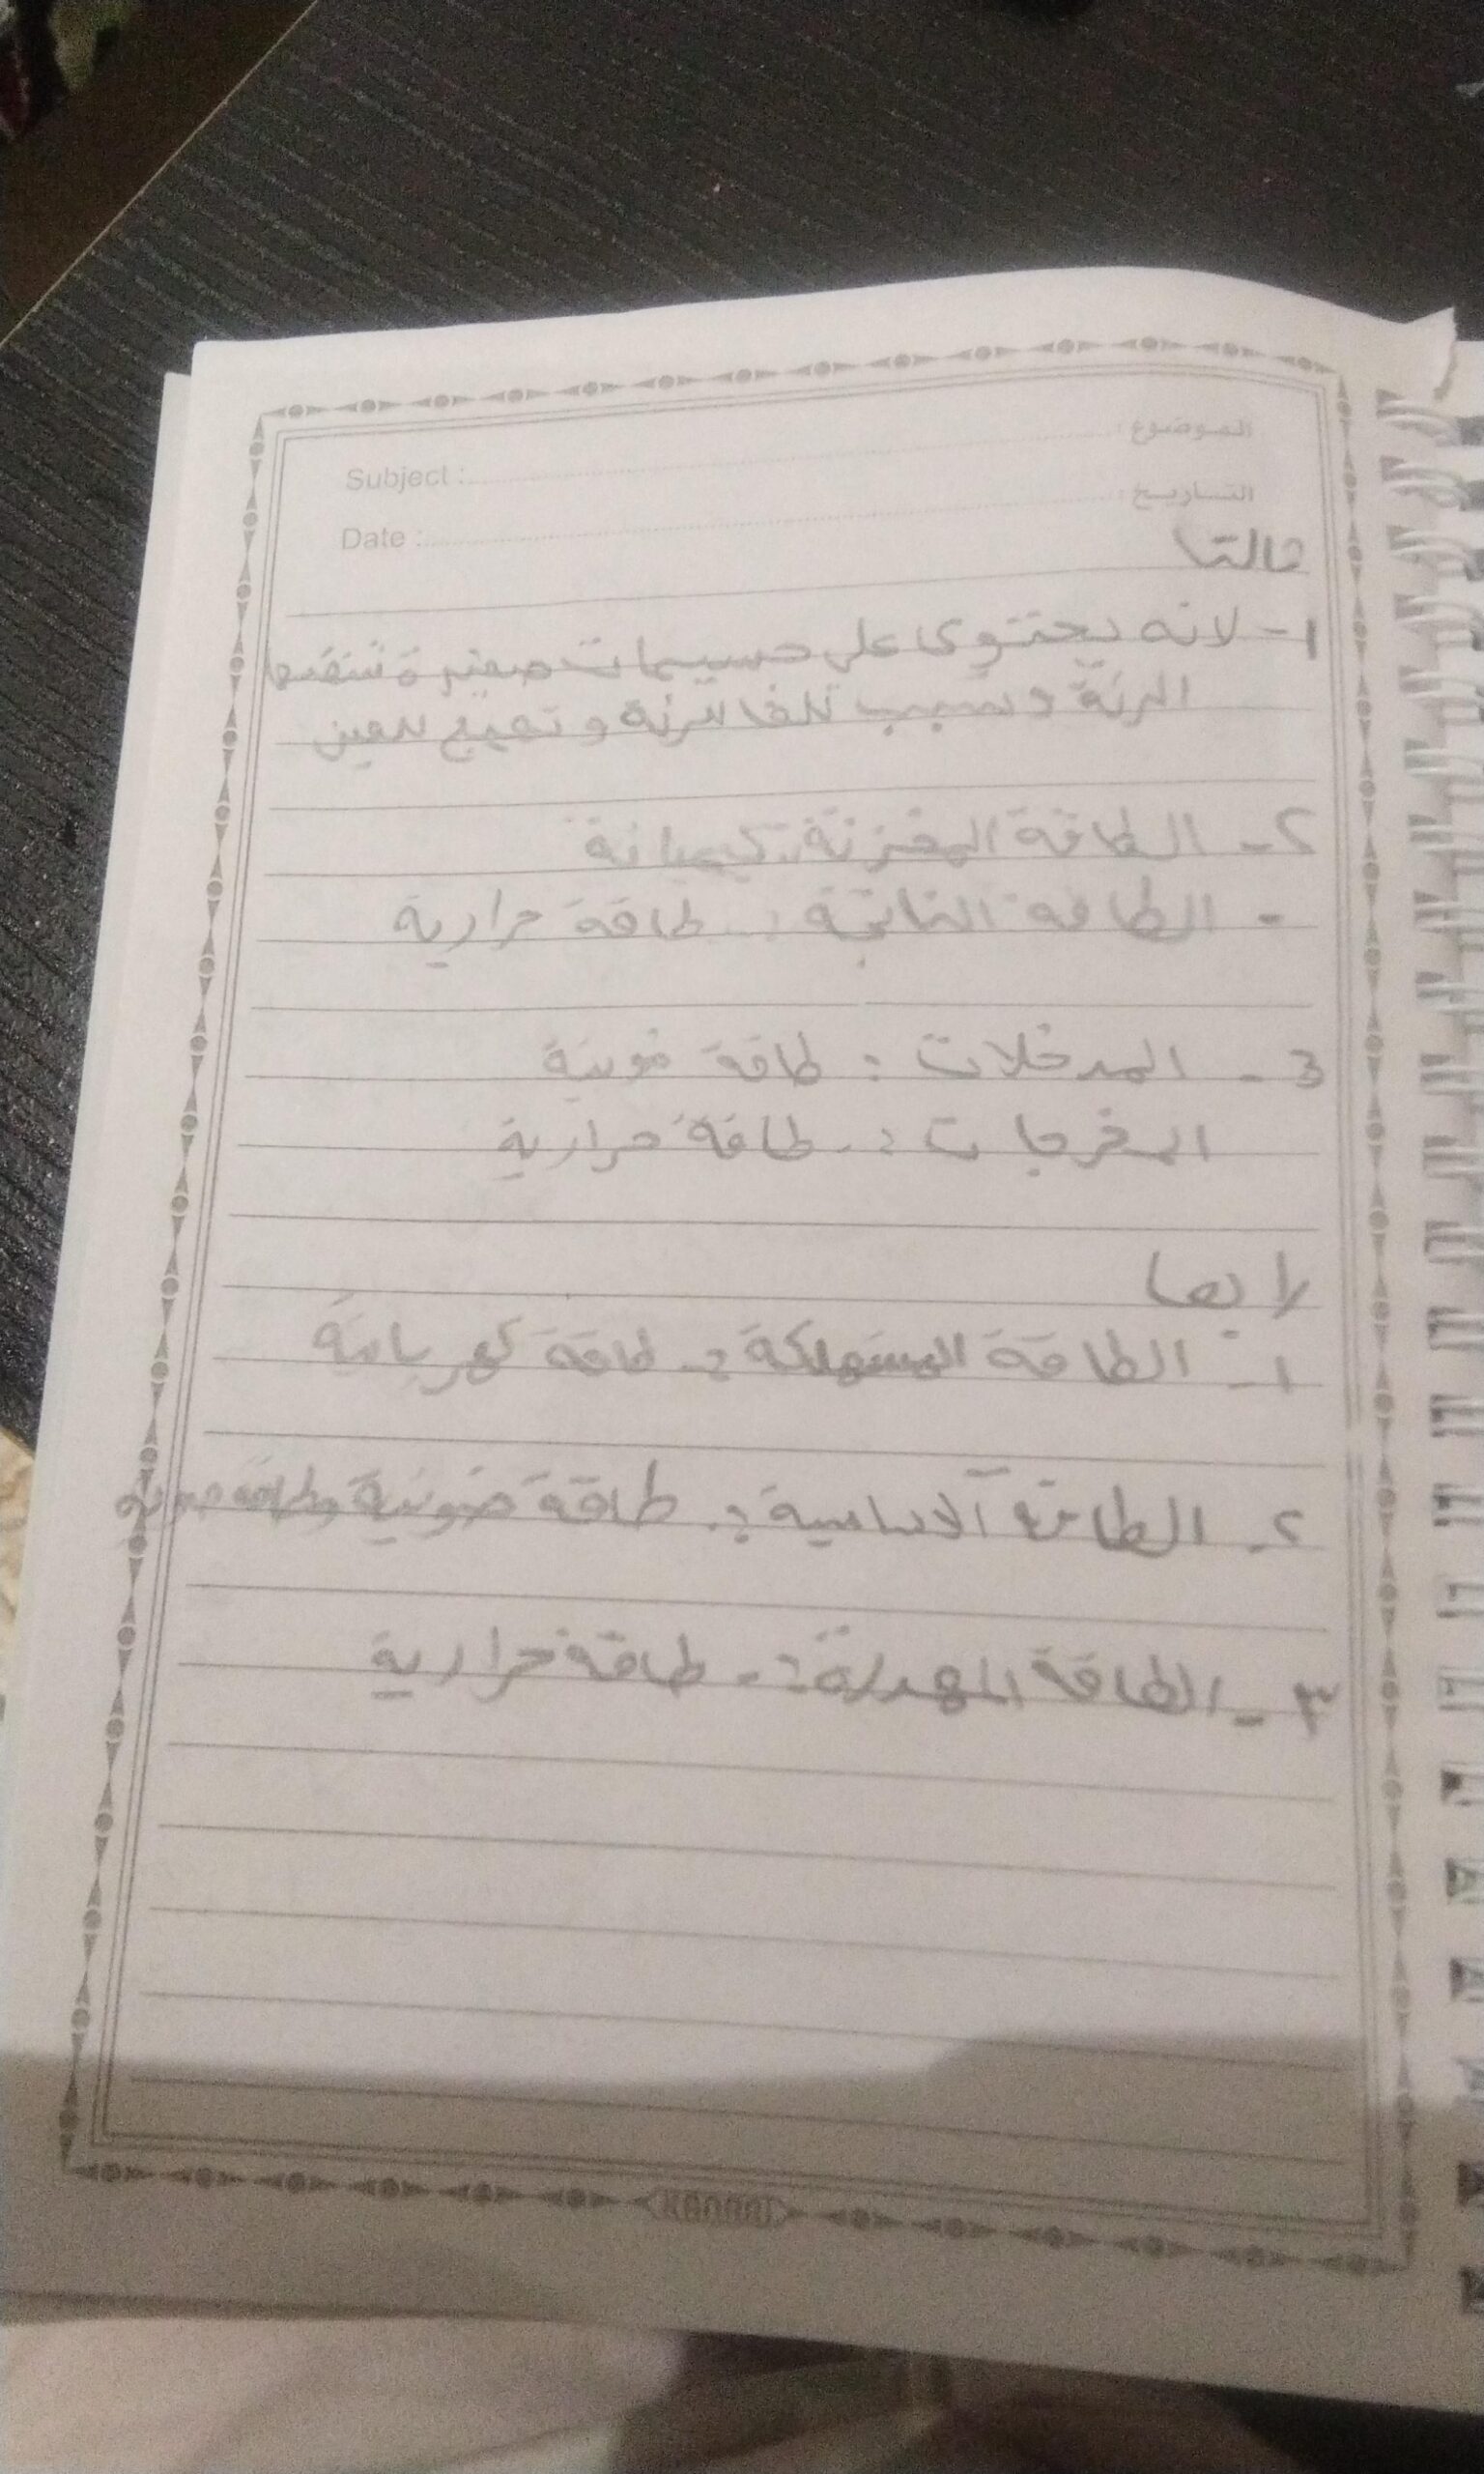 الموضوع :
Subject :
التاريخ :
Date :
ثالثا
١- لانه يحتوى على جسيمات صغيرة
الرئة وتسبب تلفا للرئة و تهيج للعين
٢- الطاقة المخزنة: كيميائية
- الطاقة الناتجة : طاقة حرارية
3 - المدخلات : طاقة ضوئية
المخرجات :- طاقة حرارية
رابعا
١- الطاقة المستهلكة :- طاقة كهربائية
٢- الطاقة الاساسية :- طاقة ضوئية وطاقة
٣- الطاقة المهدرة :- طاقة حرارية